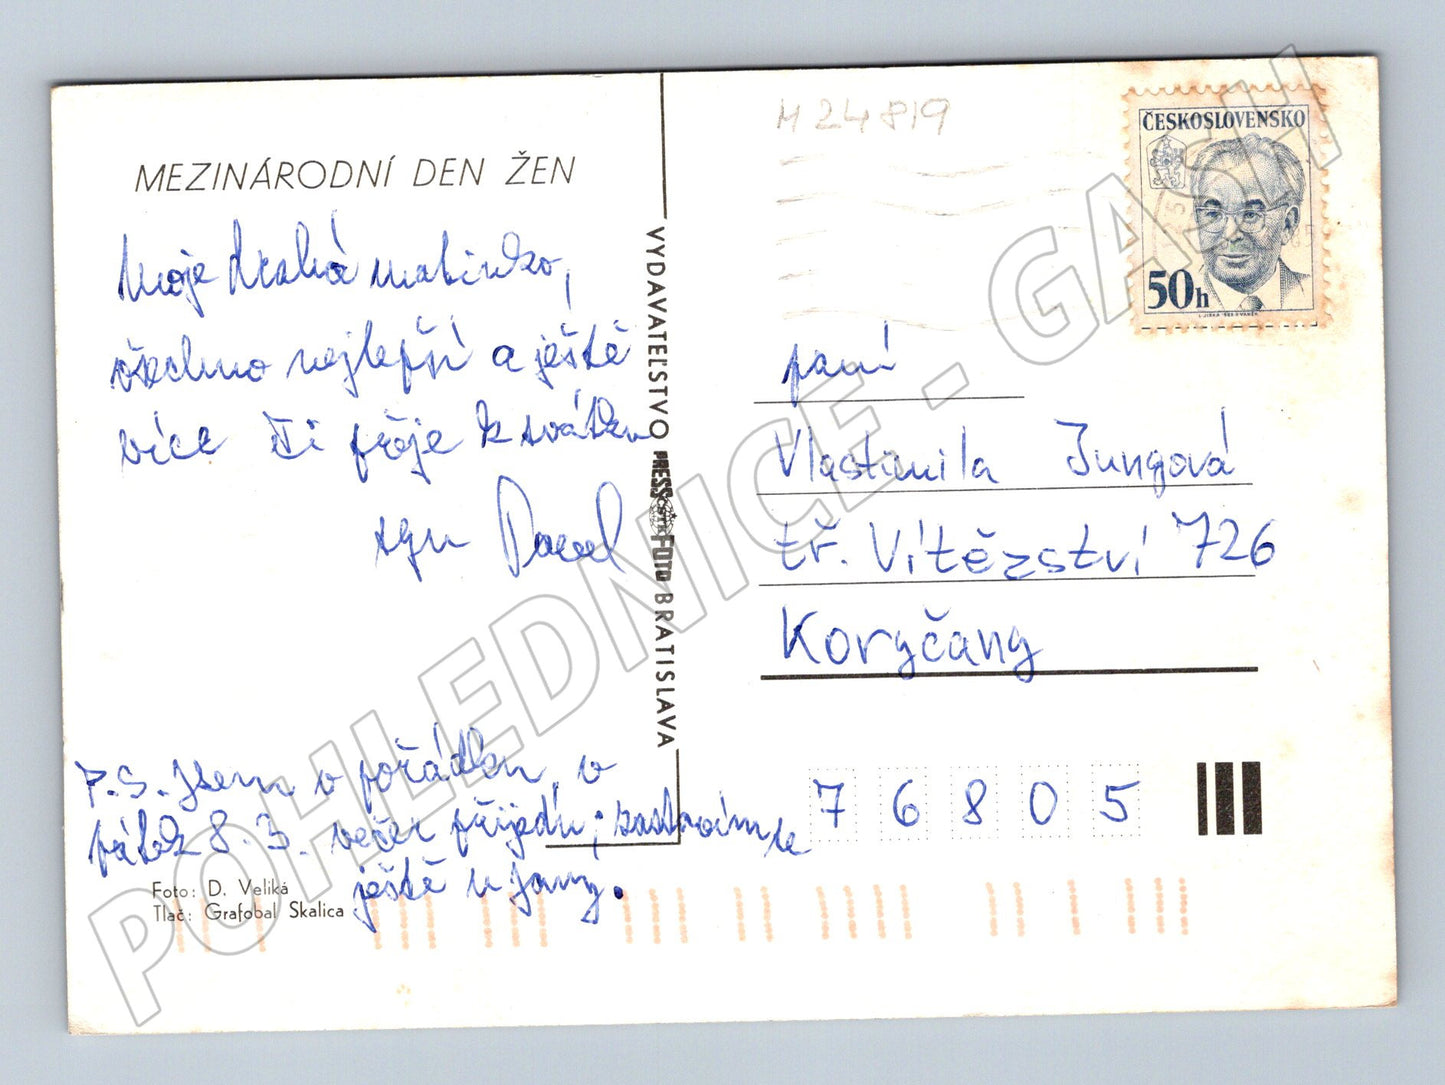 M 24819
ČESKOSLOVENSKO
50h
MEZINÁRODNÍ DEN ŽEN
Moje drahá matinko,
všechno nejlepší a ještě
více Ti přeje k svátku
syn Pavel
P.S. Jsem v pořádku, v
pátek 8. 3. večer přijedu; zastavím se
ještě u Jany.
Foto: D. Veliká
Tlač: Grafobal Skalica
VYDAVATEĽSTVO PRESSFOTO BRATISLAVA
ČSTK
paní
Vlastimila Jungová
tř. Vítězství 726
Koryčany
76805
POHLEDNICE - GASH